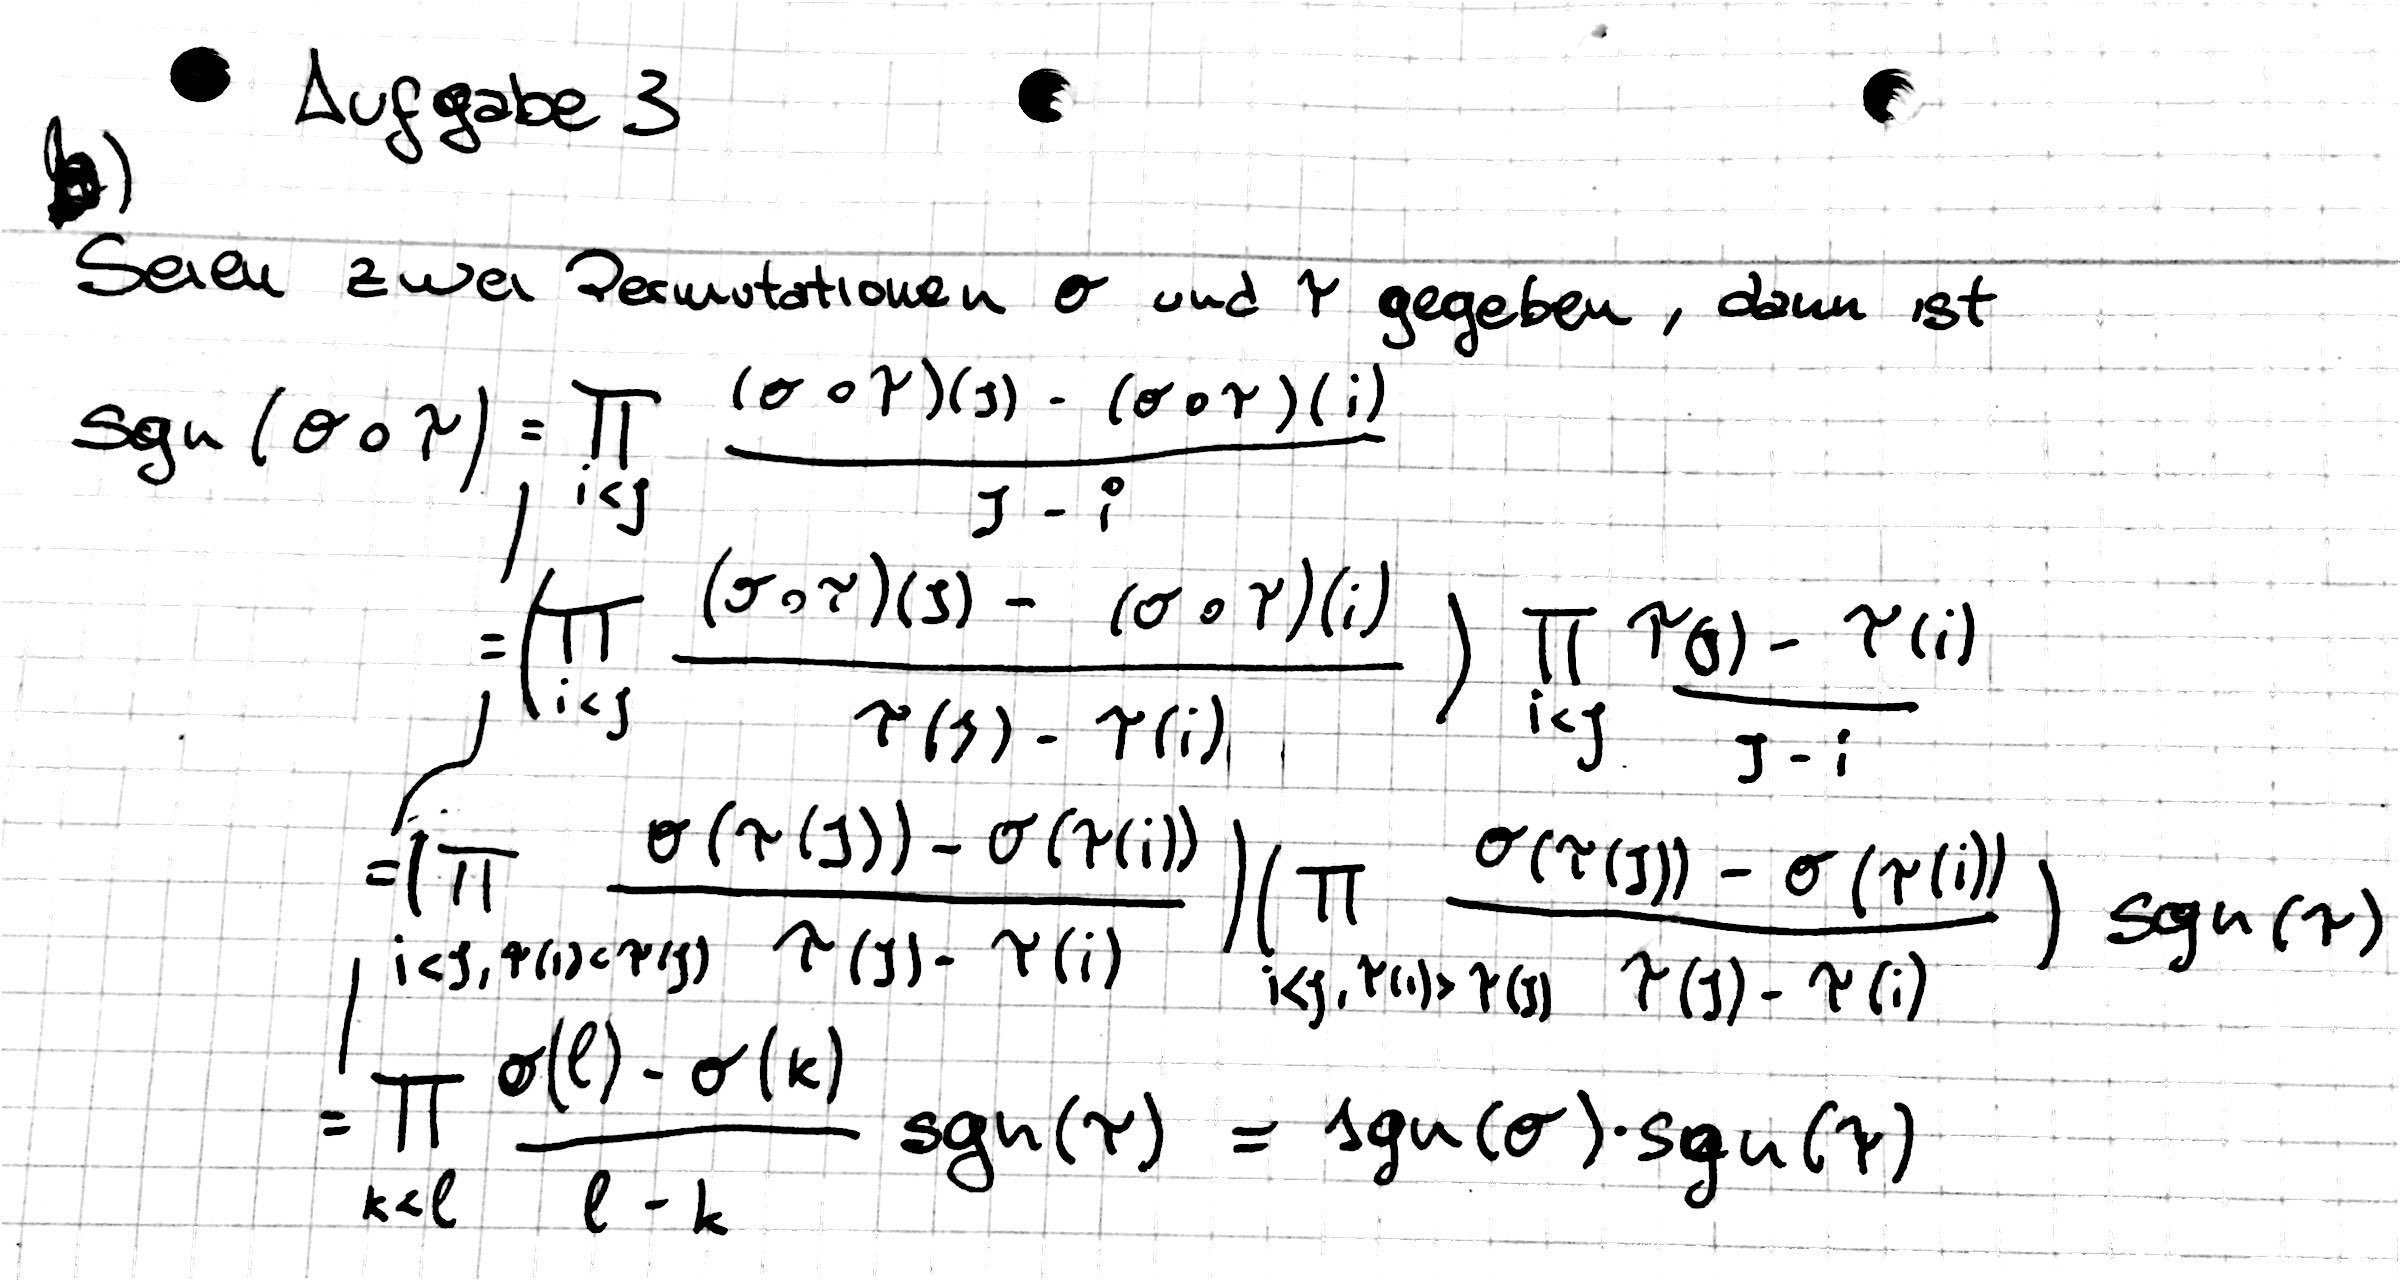 Aufgabe 3
b)
Seien zwei Permutationen σ und τ gegeben, dann ist
sgn(σ∘τ) = ∏_{i<j} ((σ∘τ)(j) - (σ∘τ)(i)) / (j - i)
= (∏_{i<j} ((σ∘τ)(j) - (σ∘τ)(i)) / (τ(j) - τ(i))) ∏_{i<j} (τ(j) - τ(i)) / (j - i)
= (∏_{i<j, τ(i)<τ(j)} (σ(τ(j)) - σ(τ(i))) / (τ(j) - τ(i))) (∏_{i<j, τ(i)>τ(j)} (σ(τ(j)) - σ(τ(i))) / (τ(j) - τ(i))) sgn(τ)
= ∏_{k<l} (σ(l) - σ(k)) / (l - k) sgn(τ) = sgn(σ)·sgn(τ)